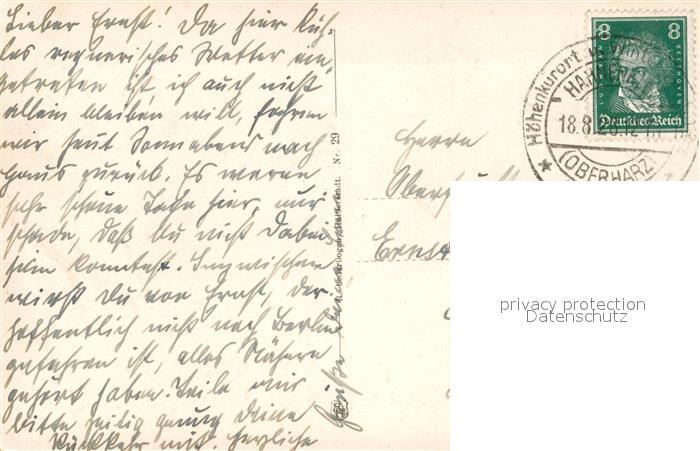 Lieber Ernst! Da hier küh-
les regnerisches Wetter ein-
getreten ist, ich auch nicht
allein bleiben will, fahren
wir heut Sonnabend nach
Haus zurück. Es waren
sehr schöne Tage hier, nur
schade, daß Du nicht dabei
sein konntest. Inzwischen
wirst Du von Ernst, der
hoffentlich nicht nach Berlin
gefahren ist, alles Nähere
gehört haben. Teile mir
bitte zeitig genug Deine
Rückkehr mit. Herzliche
Grüße
Nr. 29
Herrn
Ernst
8 8
BEETHOVEN
Deutsches Reich
Höhenkurort u. Wint
HAHNENKLEE
18.8.
(OBERHARZ)
privacy protection
Datenschutz